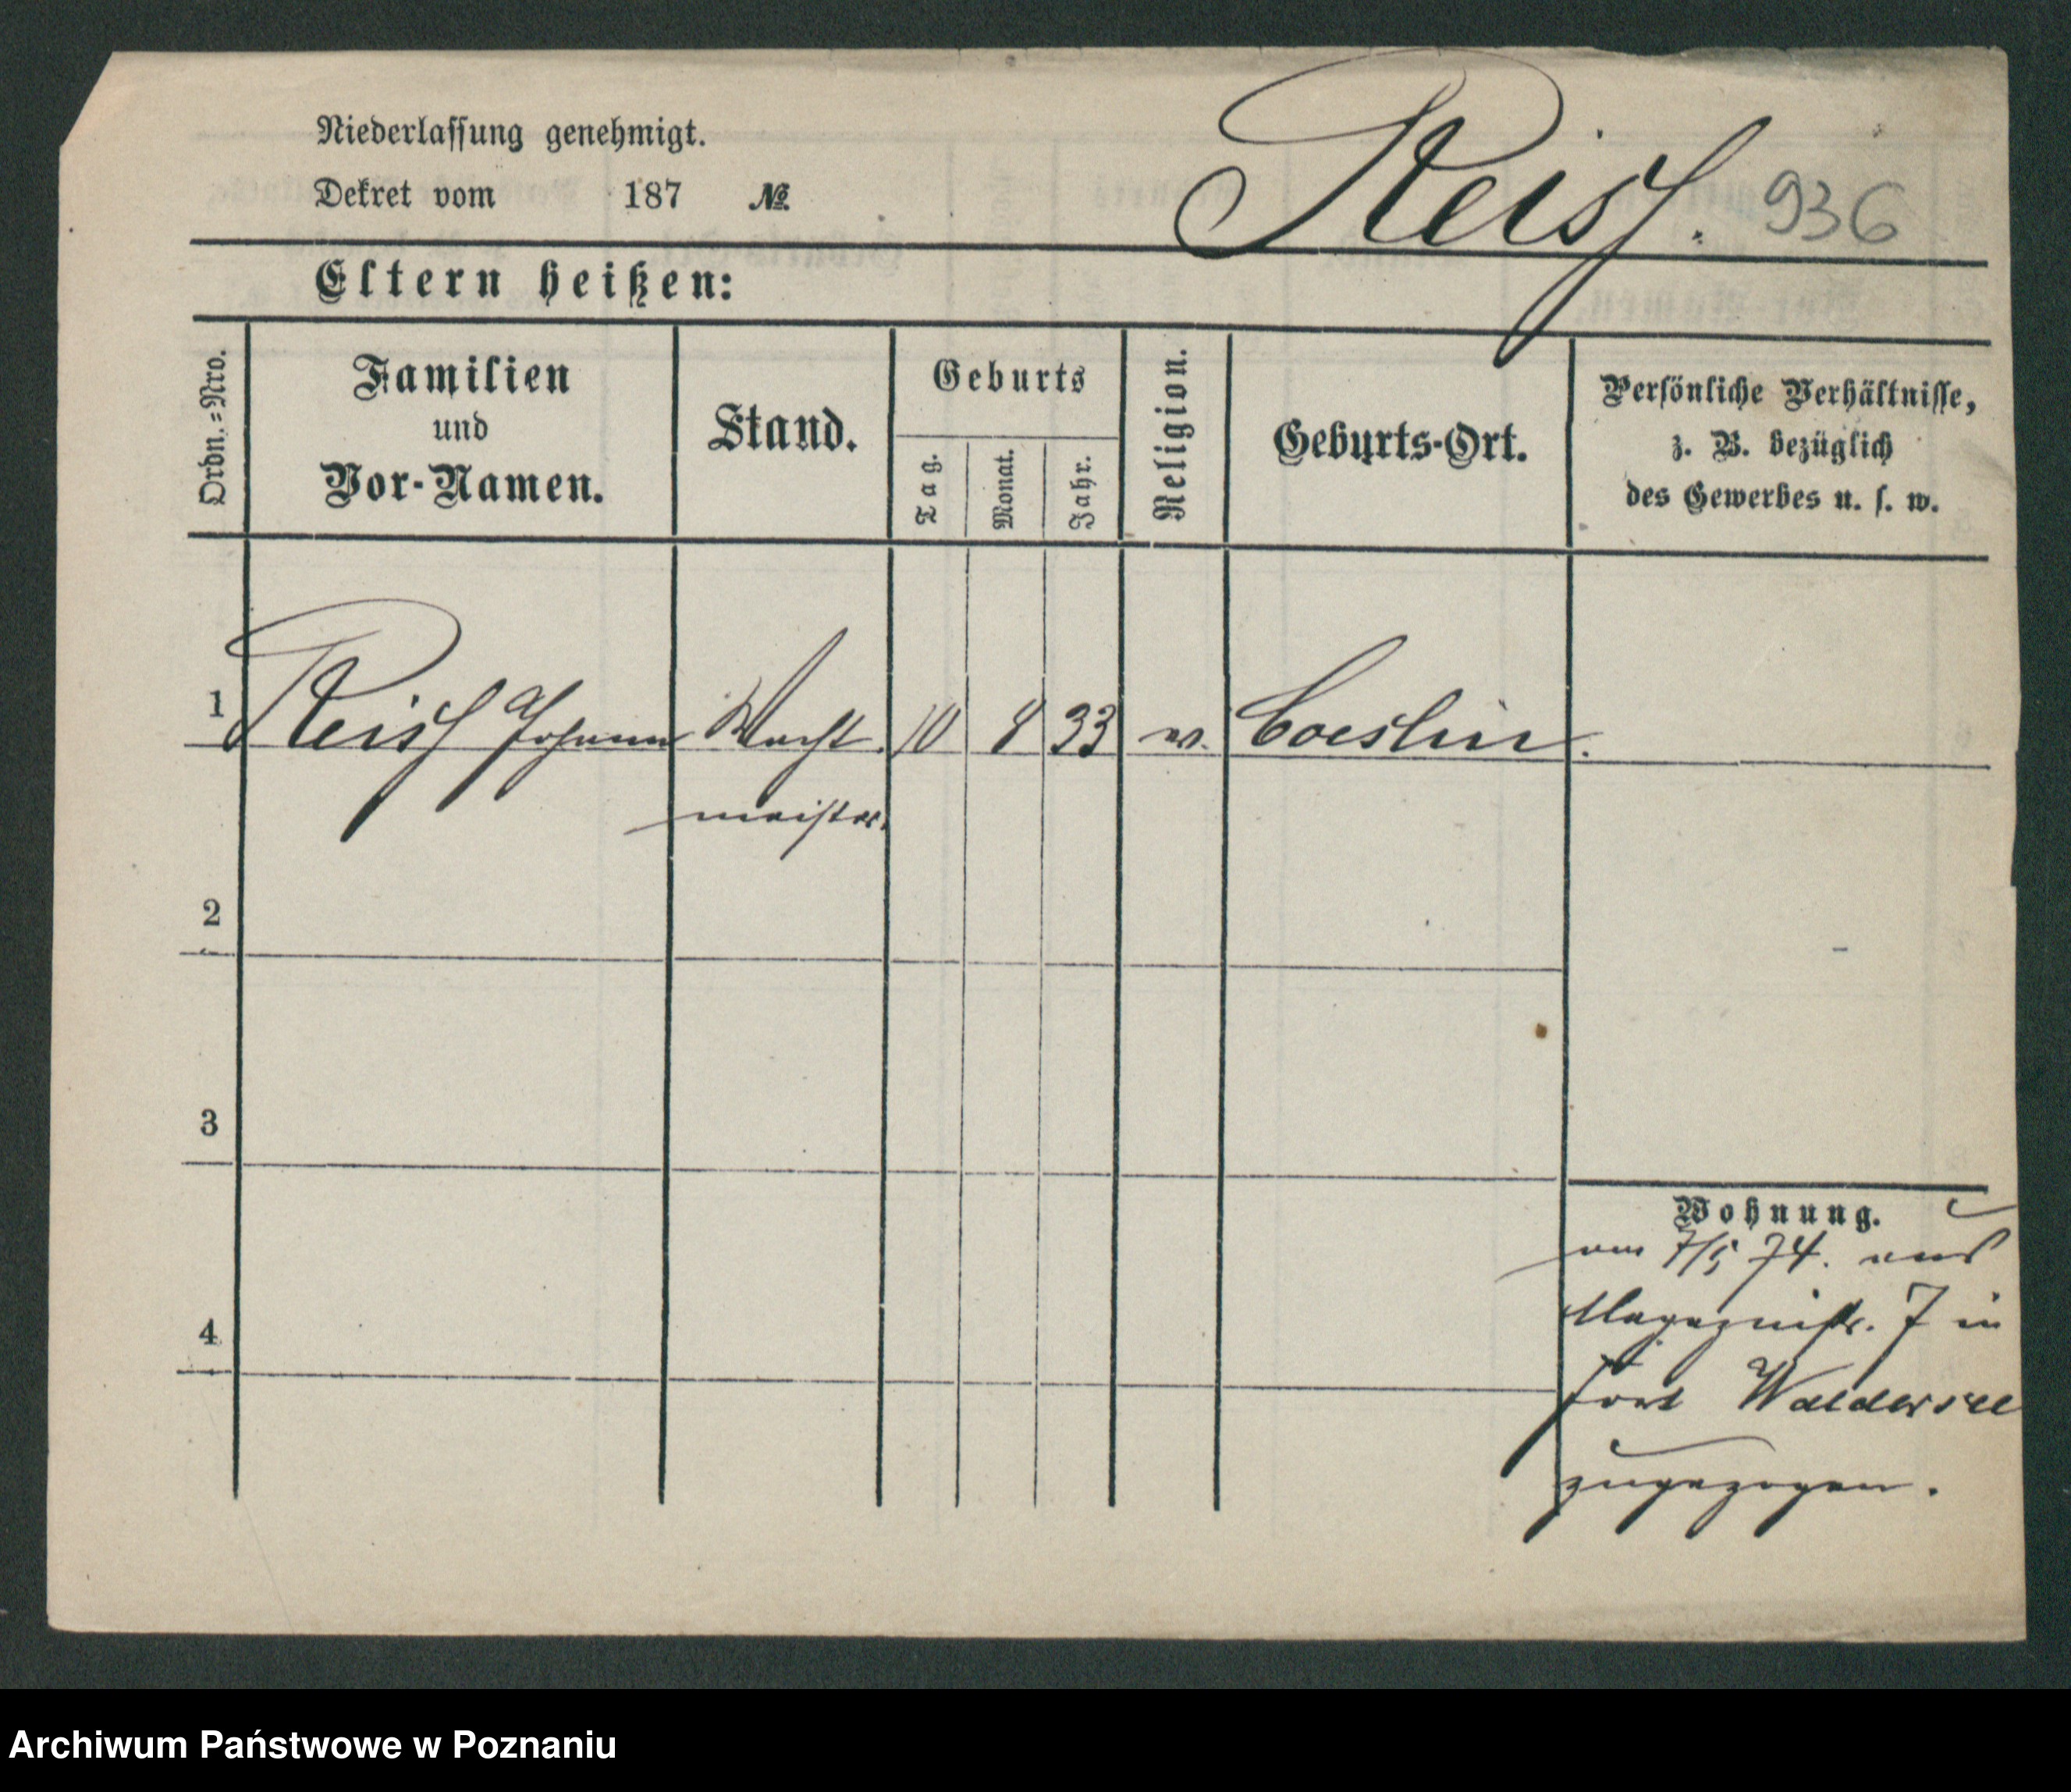 Niederlaſſung genehmigt.
Dekret vom 187 №
Reisſ. 936
Eltern heißen:
Ordn.=Nro.
Familien
und
Vor-Namen.
Stand.
Geburts
Tag.
Monat.
Jahr.
Religion.
Geburts-Ort.
Perſönliche Verhältniſſe,
z. B. bezüglich
des Gewerbes u. ſ. w.
1 Reisſ Johann Wacht 10 8 33 ev. Coeslin.
meister.
2
3
4
Wohnung.
am 7/5 74. aus
Magazinstr. 7 in
Fort Waldersee
zugezogen.
Archiwum Państwowe w Poznaniu